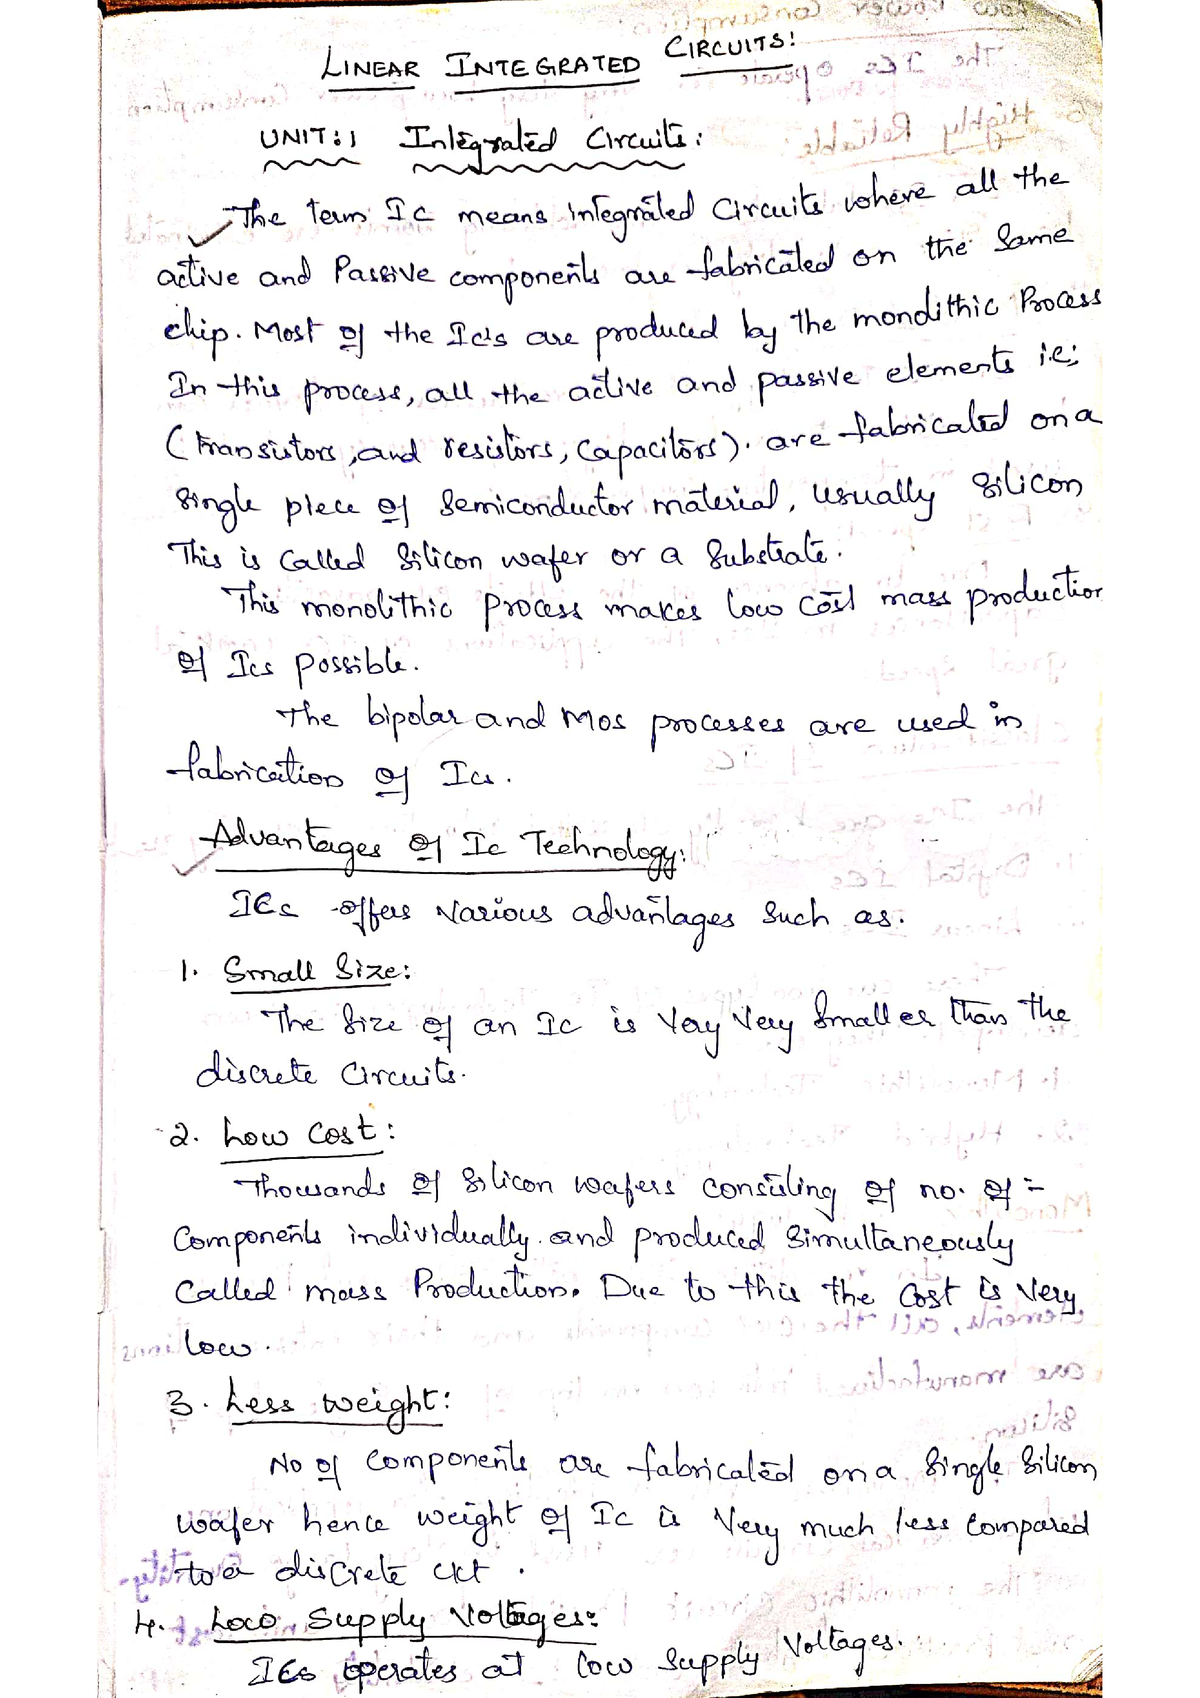 LINEAR INTEGRATED CIRCUITS:
UNIT:1 Integrated Circuits:
The term IC means integrated Circuits where all the
active and Passive components are fabricated on the Same
chip. Most of the Ic's are produced by the mondithic Process
In this process, all the active and passive elements i.e;
(transistors, and resistors, Capacitors). are fabricated on a
Single piece of Semiconductor material, usually Silicon
This is Called Silicon wafer or a Substrate.
This monolithic process makes low cost mass production
of Ics possible.
The bipolar and Mos processes are used in
fabrication of Ics.
Advantages of Ic Technology:
ICs offers Various advantages Such as.
1. Small Size:
The Size of an Ic is Very Very Smaller than the
discrete Circuits.
2. Low Cost:
Thousands of Silicon wafers consisting of no. of =
Components individually and produced Simultaneously
Called mass Production. Due to this the Cost is Very
low.
3. Less weight:
No of Components are fabricated on a Single Silicon
wafer hence weight of Ic is Very much less Compared
to a discrete ckt.
4. Low Supply Voltages:
ICs operates at low Supply Voltages.